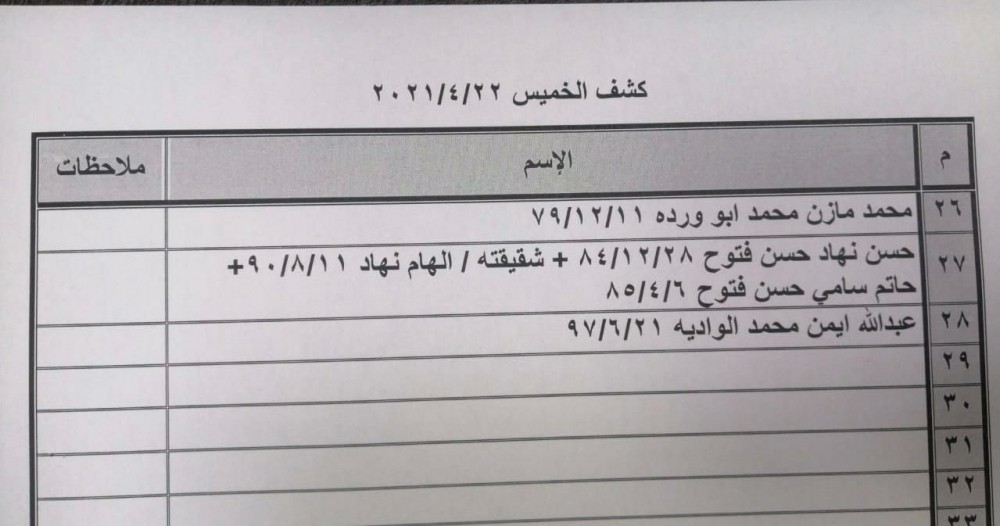 كشف الخميس ٢٠٢١/٤/٢٢
م الإسم ملاحظات
٢٦ محمد مازن محمد ابو ورده ٧٩/١٢/١١
٢٧ حسن نهاد حسن فتوح ٨٤/١٢/٢٨ + شقيقته / الهام نهاد ٩٠/٨/١١+
حاتم سامي حسن فتوح ٨٥/٤/٦
٢٨ عبدالله ايمن محمد الواديه ٩٧/٦/٢١
٢٩
٣٠
٣١
٣٢
٣٣